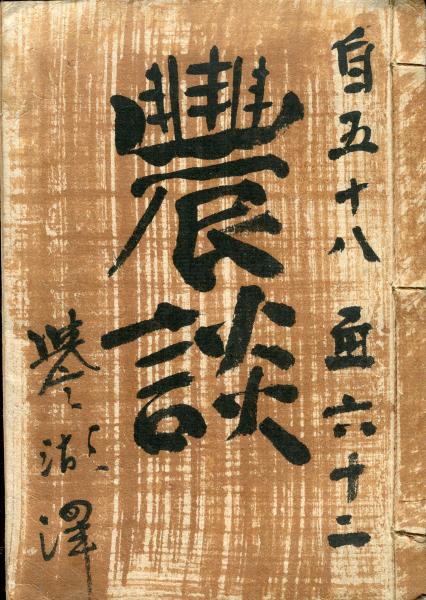 自五十八 至六十二
農談
湖澤